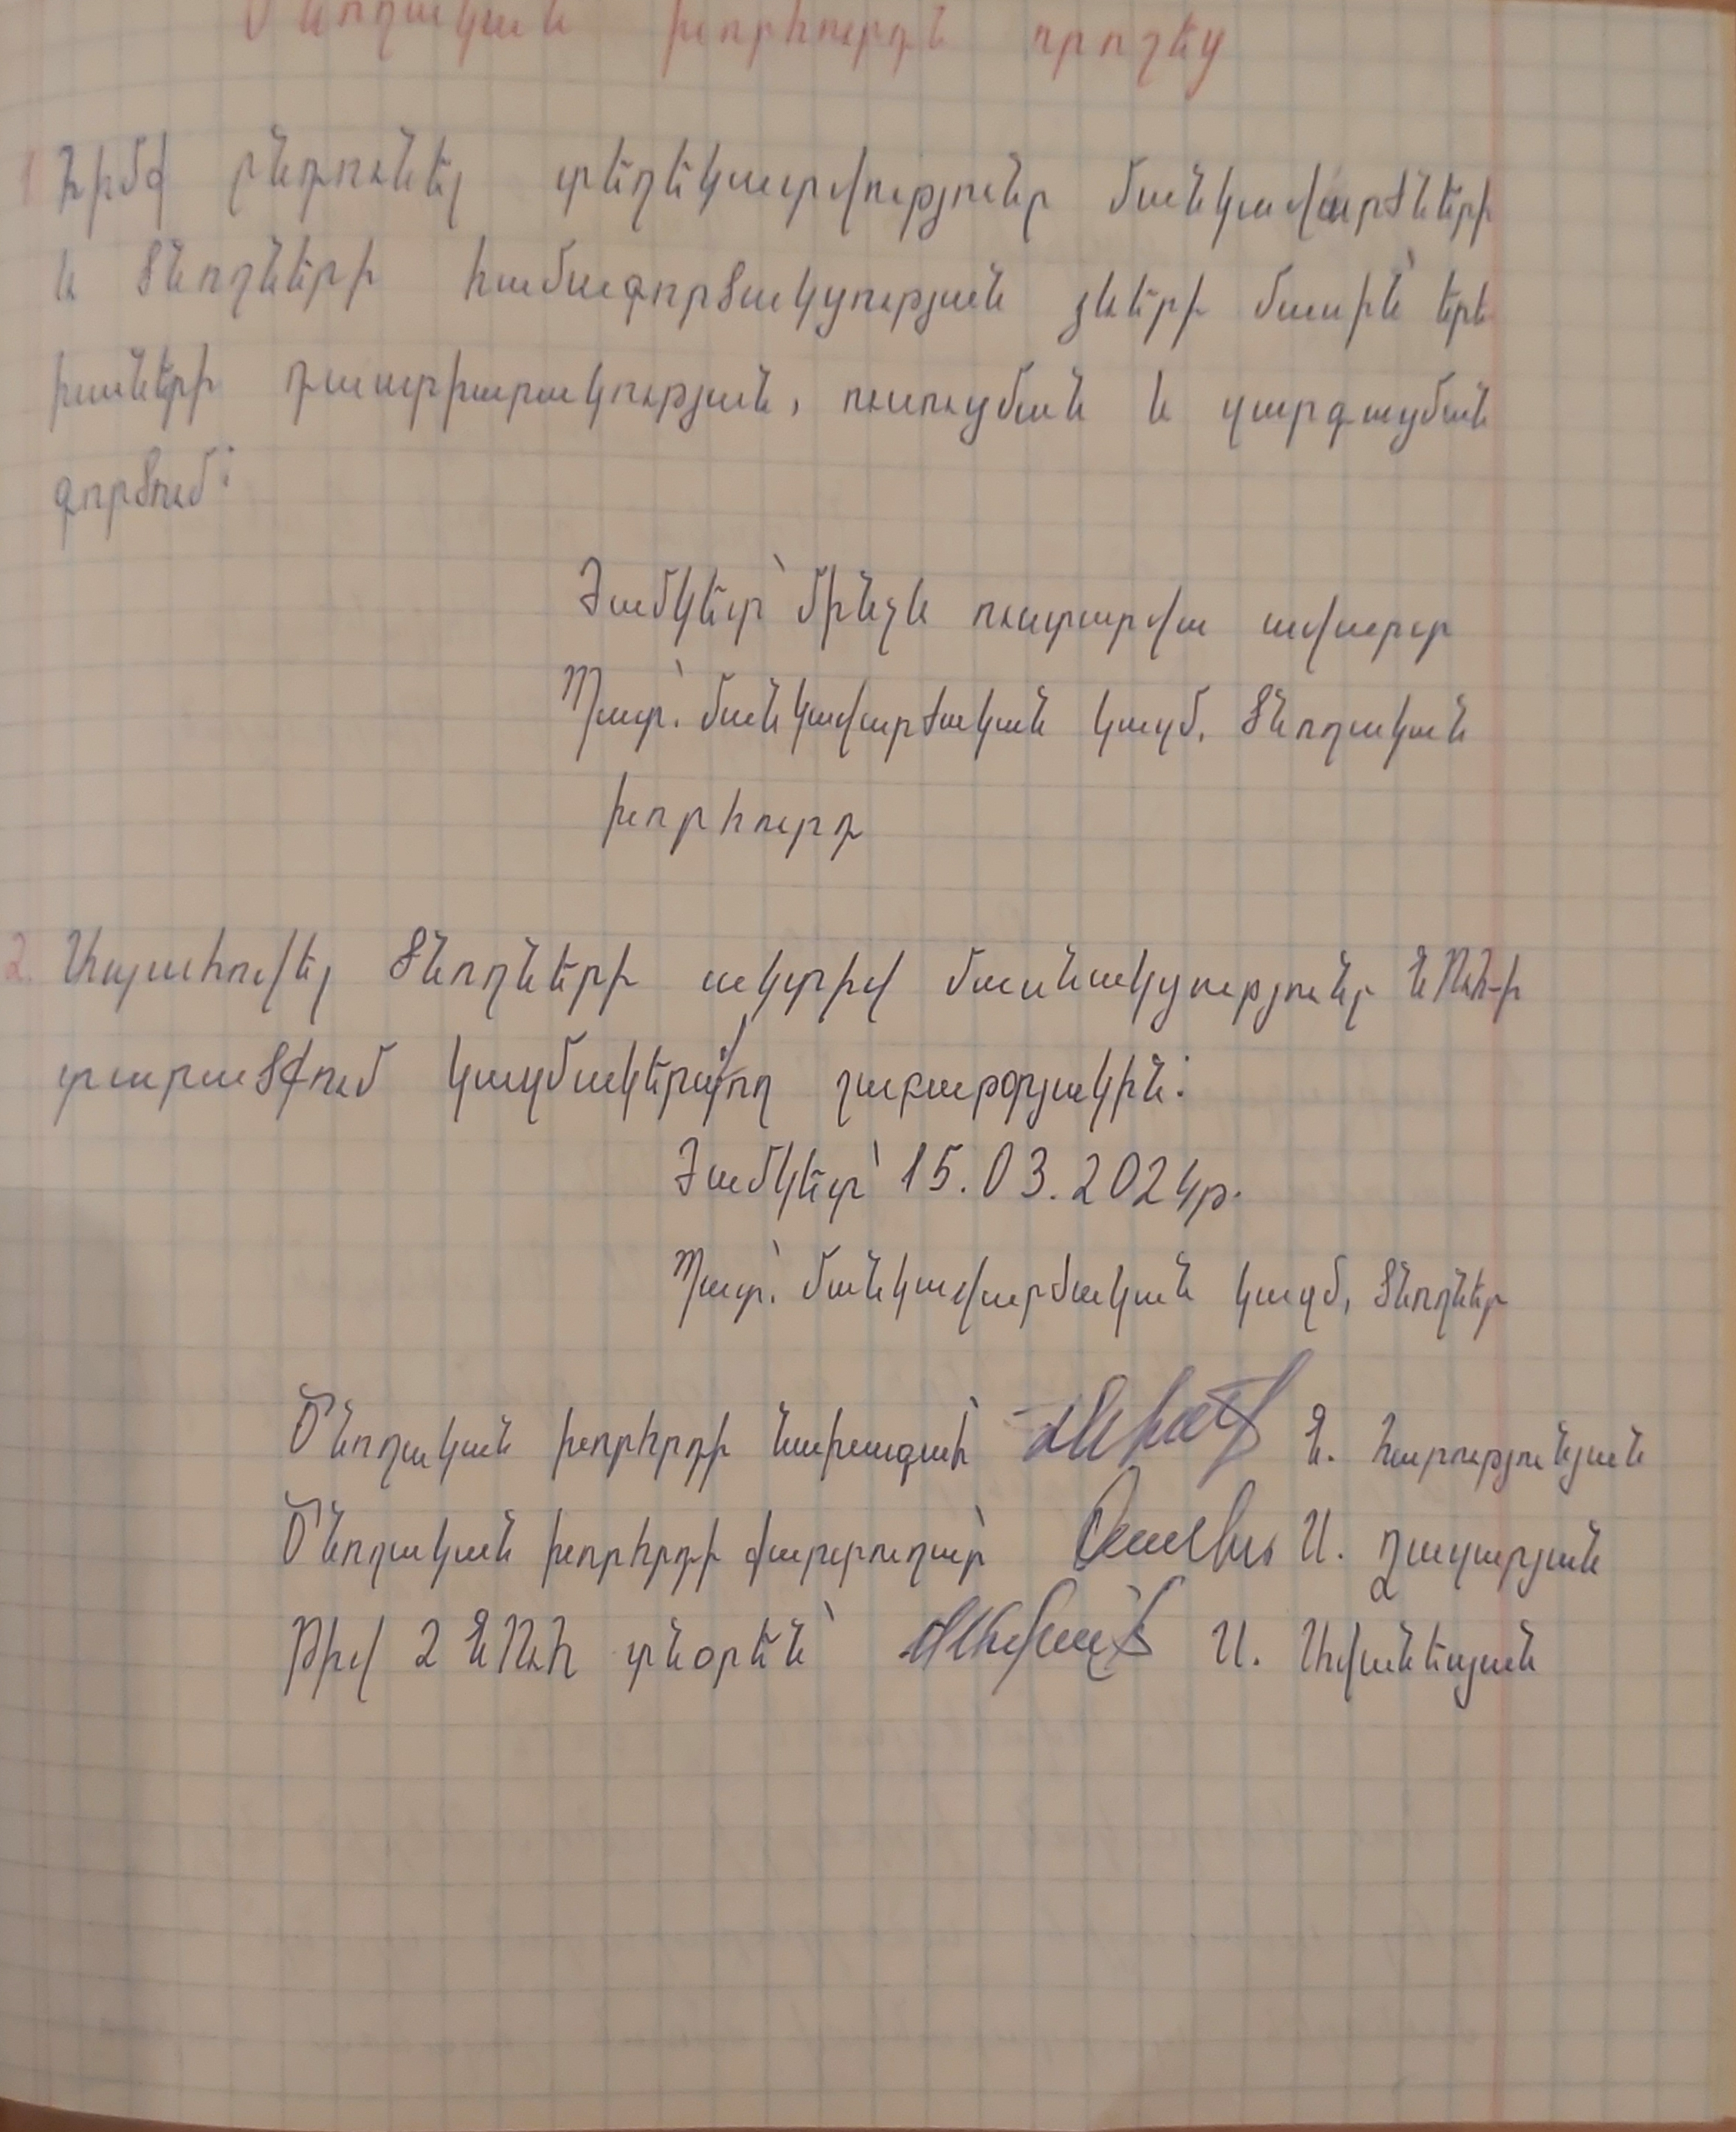 Ծնողական խորհուրդն որոշեց
1 Հիմք ընդունել տեղեկատվությունը մանկավարժների
և ծնողների համագործակցության ձևերի մասին՝ երե
խաների դաստիարակության, ուսուցման և զարգացման
գործում:
Ժամկետ՝ մինչև ուստարվա ավարտ
Պատ.՝ մանկավարժական կազմ, ծնողական
խորհուրդ
2. Ապահովել ծնողների ակտիվ մասնակցությունը ՆՈւՀ-ի
տարածքում կազմակերպվող շաբաթօրյակին:
Ժամկետ՝ 15.03.2024թ.
Պատ.՝ մանկավարժական կազմ, ծնողներ
Ծնողական խորհրդի նախագահ՝ Հ. Հարությունյան
Ծնողական խորհրդի քարտուղար՝ Ա. Ղազարյան
Թիվ 2 ՆՈւՀ տնօրեն՝ Ա. Ավանեսյան